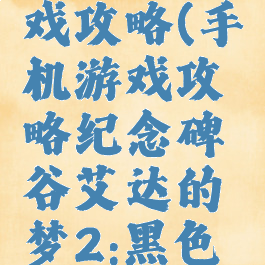 戏攻略(手
机游戏攻
略纪念碑
谷艾达的
梦2:黑色